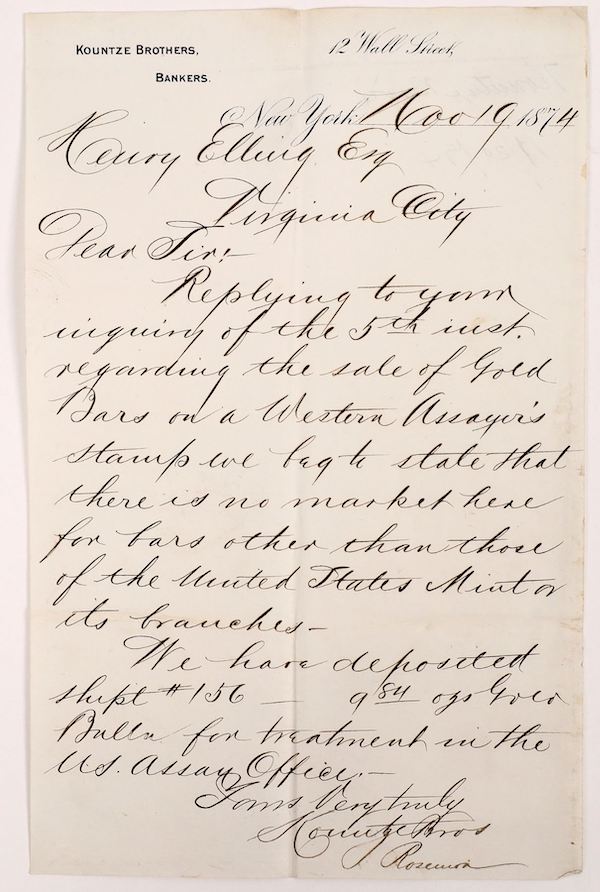 KOUNTZE BROTHERS,
BANKERS.
12 Wall Street,
New York Nov 19 1874
Henry Elling Esq
Virginia City
Dear Sir:—
Replying to your
inquiry of the 5th inst.
regarding the sale of Gold
Bars on a Western Assayer's
stamp we beg to state that
there is no market here
for bars other than those
of the United States Mint or
its branches—
We have deposited
shipt #156 — 9 84 ozs Gold
Bulln for treatment in the
U.S. Assay Office.—
Yours Very truly
Kountze Bros